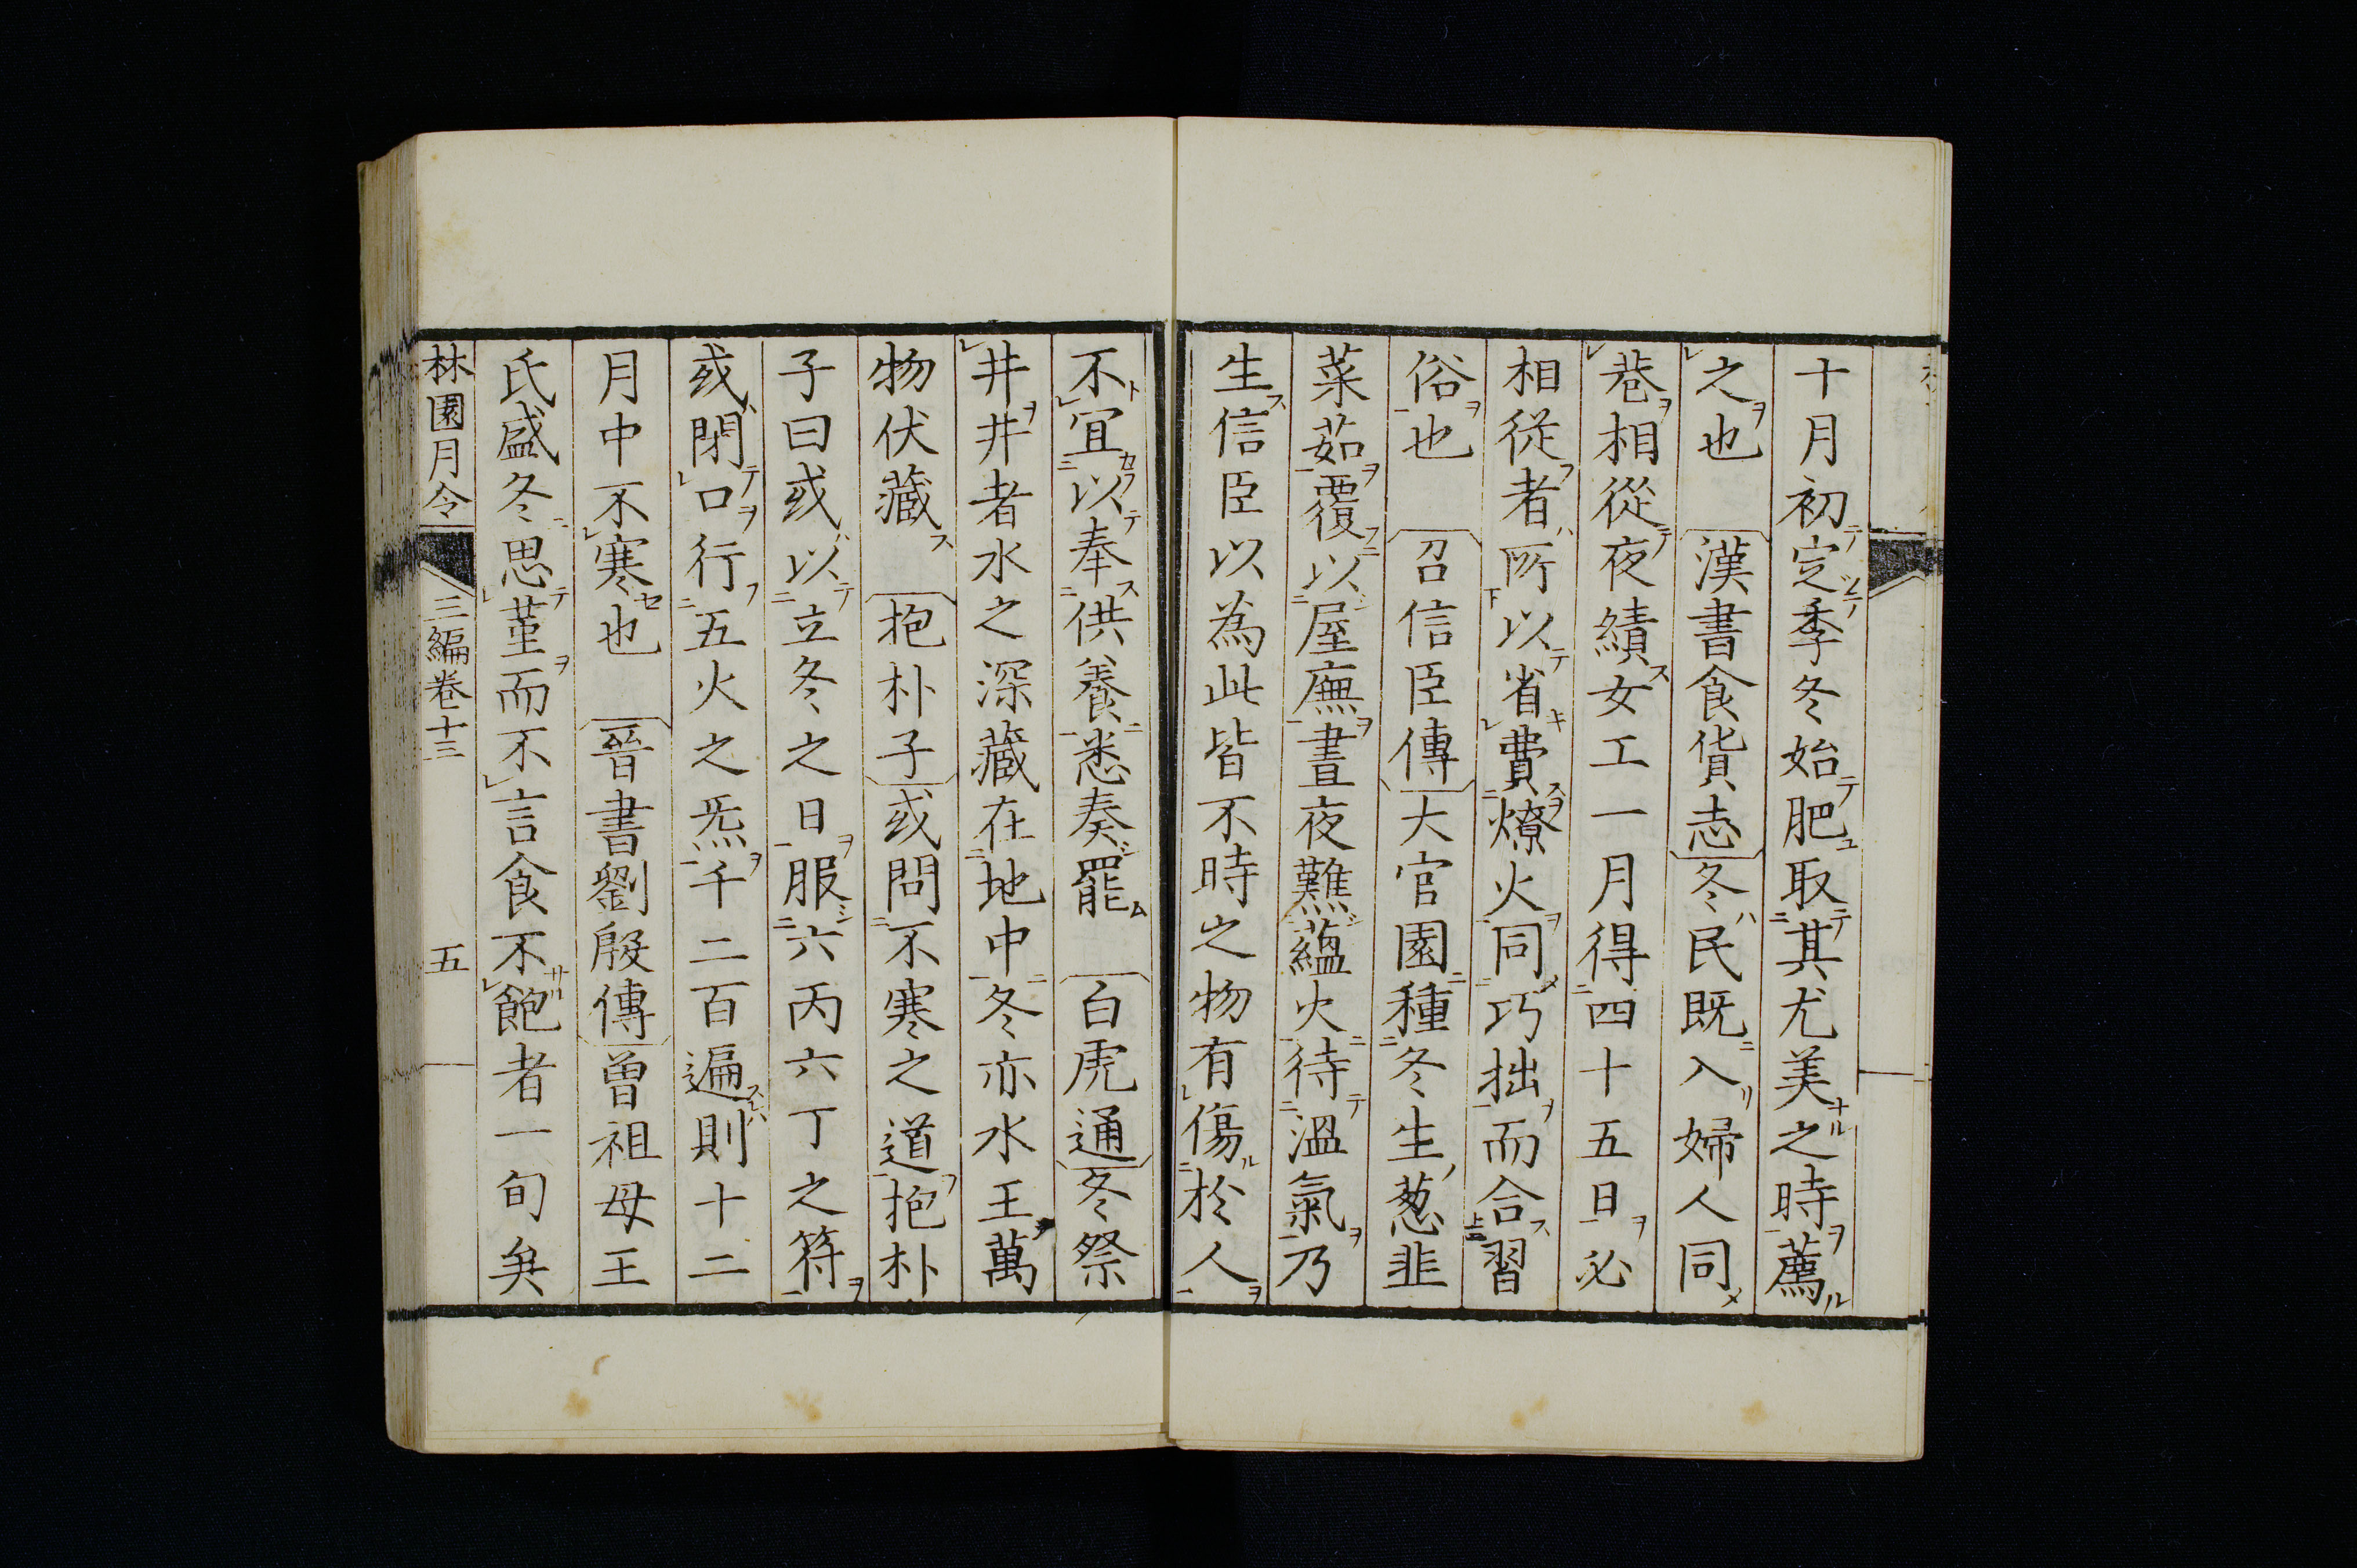 十月初定季冬始肥取其尤美之時薦
之也 漢書食貨志 冬民既入婦人同
巷相從夜績女工一月得四十五日必
相從者所以省費燎火同巧拙而合習
俗也 召信臣傳 大官園種冬生葱韭
菜茹覆以屋廡晝夜難蘊火待溫氣乃
生信臣以為此皆不時之物有傷於人
不宜以奉供養悉奏罷 白虎通 冬祭
井井者水之深藏在地中冬亦水王萬
物伏藏 抱朴子 或問不寒之道抱朴
子曰或以立冬之日服六丙六丁之符
或閉口行五火之炁千二百遍則十二
月中不寒也 晉書劉殷傳 曾祖母王
氏盛冬思菫而不言食不飽者一旬矣
林園月令 三編卷十三 五